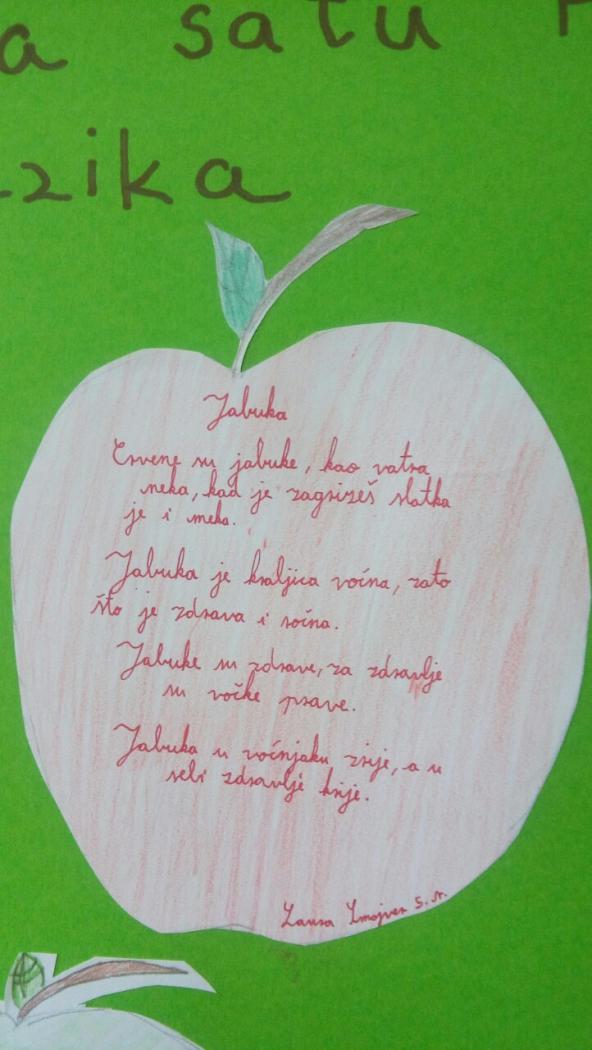 a satu
zika
Jabuka
Crvene su jabuke, kao vatra
neka, kad je zagrizeš slatka
je i meka.
Jabuka je kraljica voćna, zato
što je zdrava i sočna.
Jabuke su zdrave, za zdravlje
su voćke prave.
Jabuka u voćnjaku zrije, a u
sebi zdravlje krije.
Laura